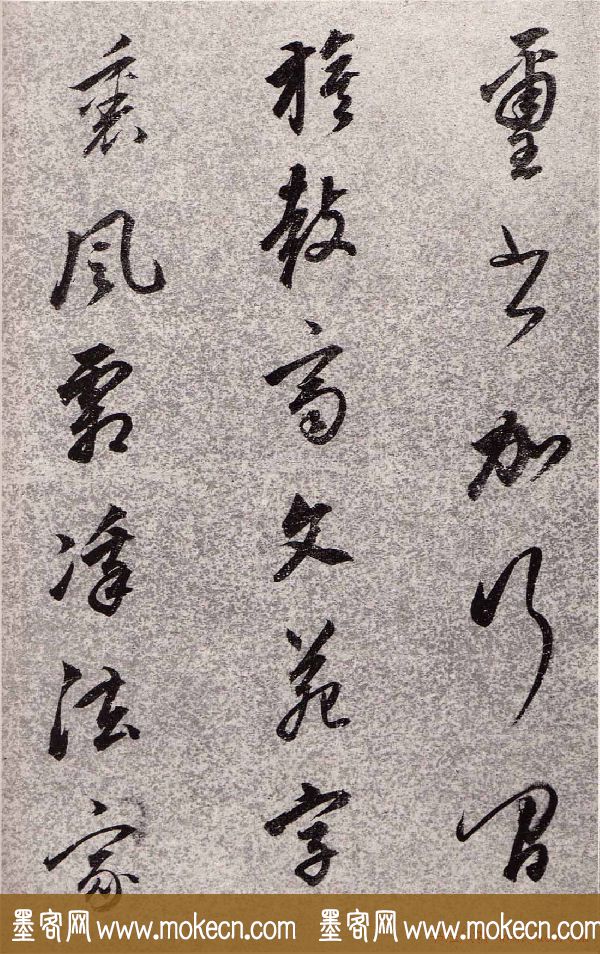 璽书加行間
旗鼓高文苑字
裏風霜凜法家
墨客网 www.mokecn.com 墨客网 www.mokecn.com